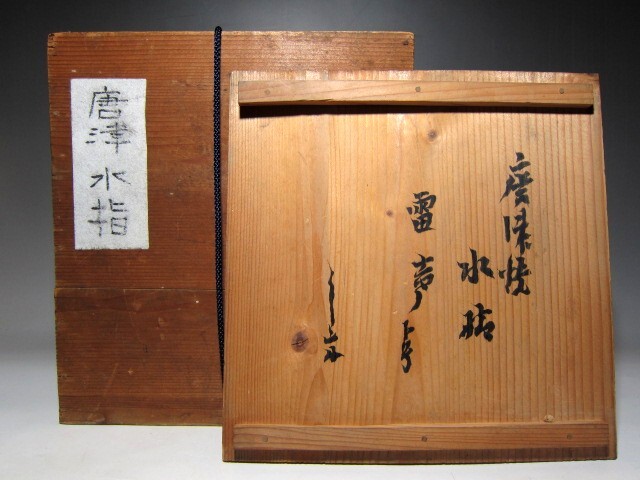 唐津
水指
唐津焼
水指
雷声